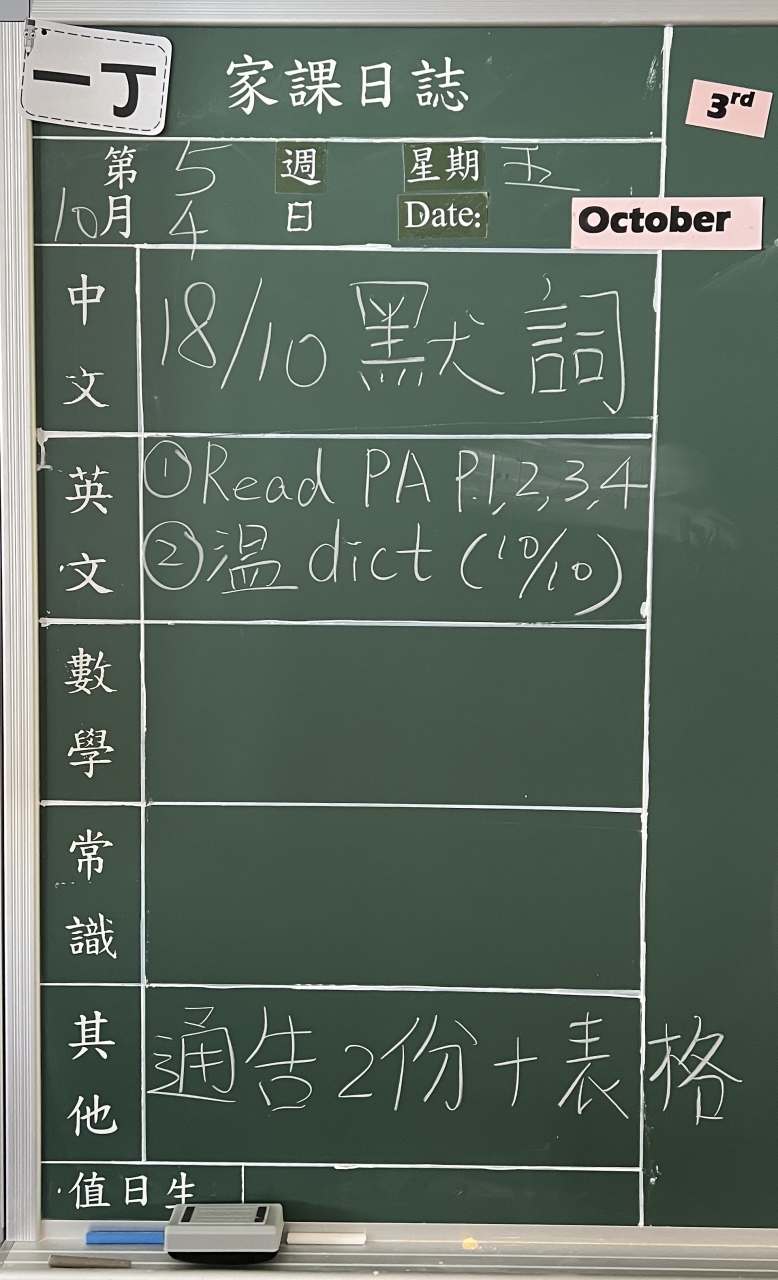 一丁
家課日誌
3rd
第5週 星期五
10月4日 Date:
October
中文
18/10 默詞
英文
①Read PA P.1,2,3,4
②温 dict (10/10)
數學
常識
其他
通告2份+表格
值日生